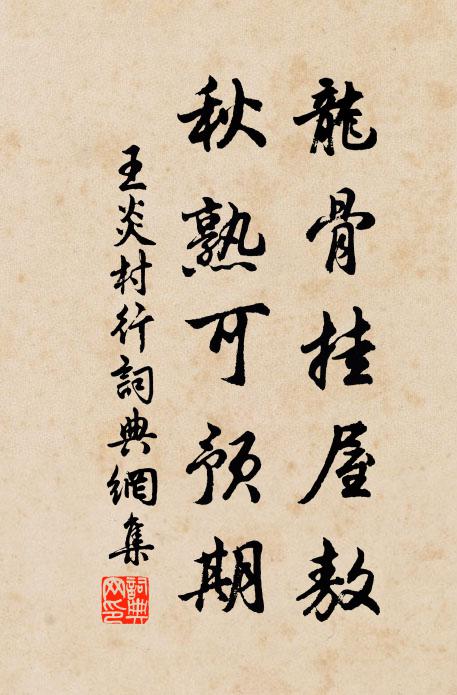 龍骨挂屋敖
秋熟可预期
王炎村行詞典網集
詞典網印